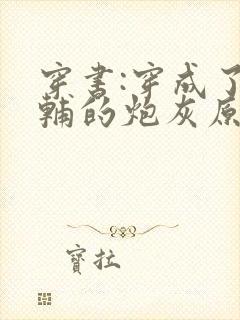 穿书:穿成了
辅的炮灰原
寶拉